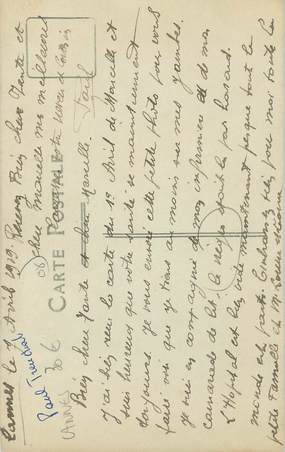 Cannes le 1 Avril 1919. Recevez Bien chère Tante et
chère Marcelle mes meilleures
CARTE POSTALE
Paul
Bien chère Tante et chère Marcelle.
J'ai bien reçu la carte du 19 Avril de Marcelle et
suis heureux que votre santé se maintiennent
toujours. Je vous envoie cette petite photo pour vous
faire voir que je tiens au moins sur mes jambes.
Je suis en compagnie de mon infirmière et de mon
camarade de lit, le nègre par hasard.
L'Hôpital est bien vide maintenant presque tout le
monde est parti. Embrassez bien pour moi toute la
petite Famille et Mr
CANNES
30 €